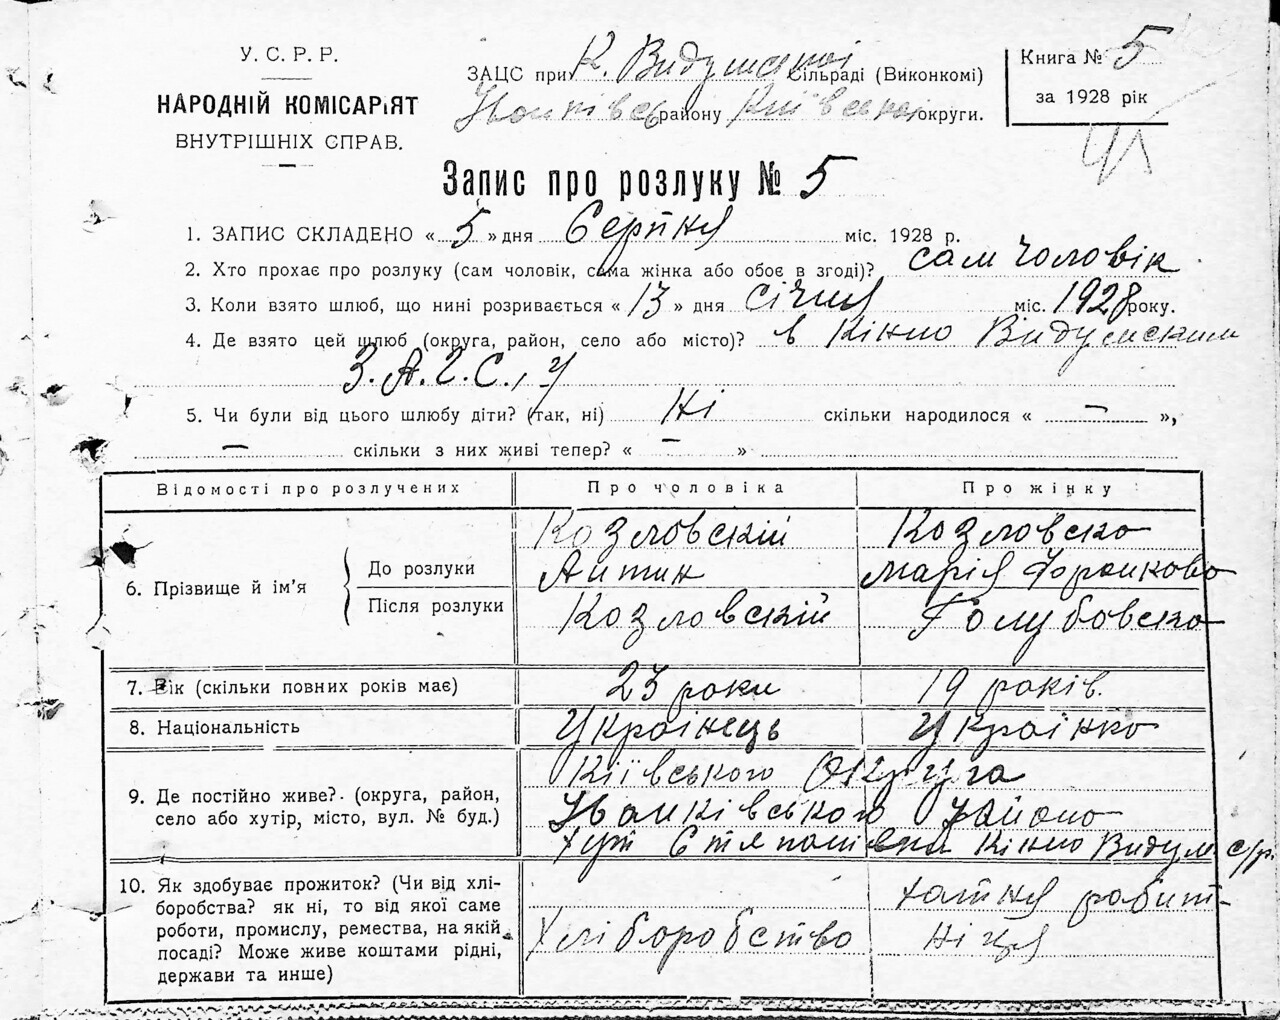 У. С. Р. Р.
НАРОДНІЙ КОМІСАРІЯТ
ВНУТРІШНІХ СПРАВ.
ЗАЦС при К. Видумській Сільраді (Виконкомі)
Іванківськ району Київської округи.
Книга № 5
за 1928 рік
Запис про розлуку № 5
1. ЗАПИС СКЛАДЕНО « 5 » дня Серпня міс. 1928 р.
2. Хто прохає про розлуку (сам чоловік, сама жінка або обоє в згоді)? сам чоловік
3. Коли взято шлюб, що нині розривається « 13 » дня січня міс. 1928 року.
4. Де взято цей шлюб (округа, район, село або місто)? в Кінно Видумским
З.А.Г.С.,у
5. Чи були від цього шлюбу діти? (так, ні) Ні скільки народилося « – »,
– скільки з них живі тепер? « – »
Відомості про розлучених Про чоловіка Про жінку
6. Прізвище й ім'я
До розлуки
Після розлуки
Козловскій
Антин
Козловскій
Козловска
Марія Франкова
Голубовска
7. Вік (скільки повних років має) 23 роки 19 років.
8. Національність Українець Українка
9. Де постійно живе? (округа, район,
село або хутір, місто, вул. № буд.)
Київського Округа
Іванківського району
хут Степанівка Кінно Видум с/р.
10. Як здобуває прожиток? (Чи від хлі-
боробства? як ні, то від якої саме
роботи, промислу, ремества, на якій
посаді? Може живе коштами рідні,
держави та инше)
Хліборобство
хатня робіт-
ніця